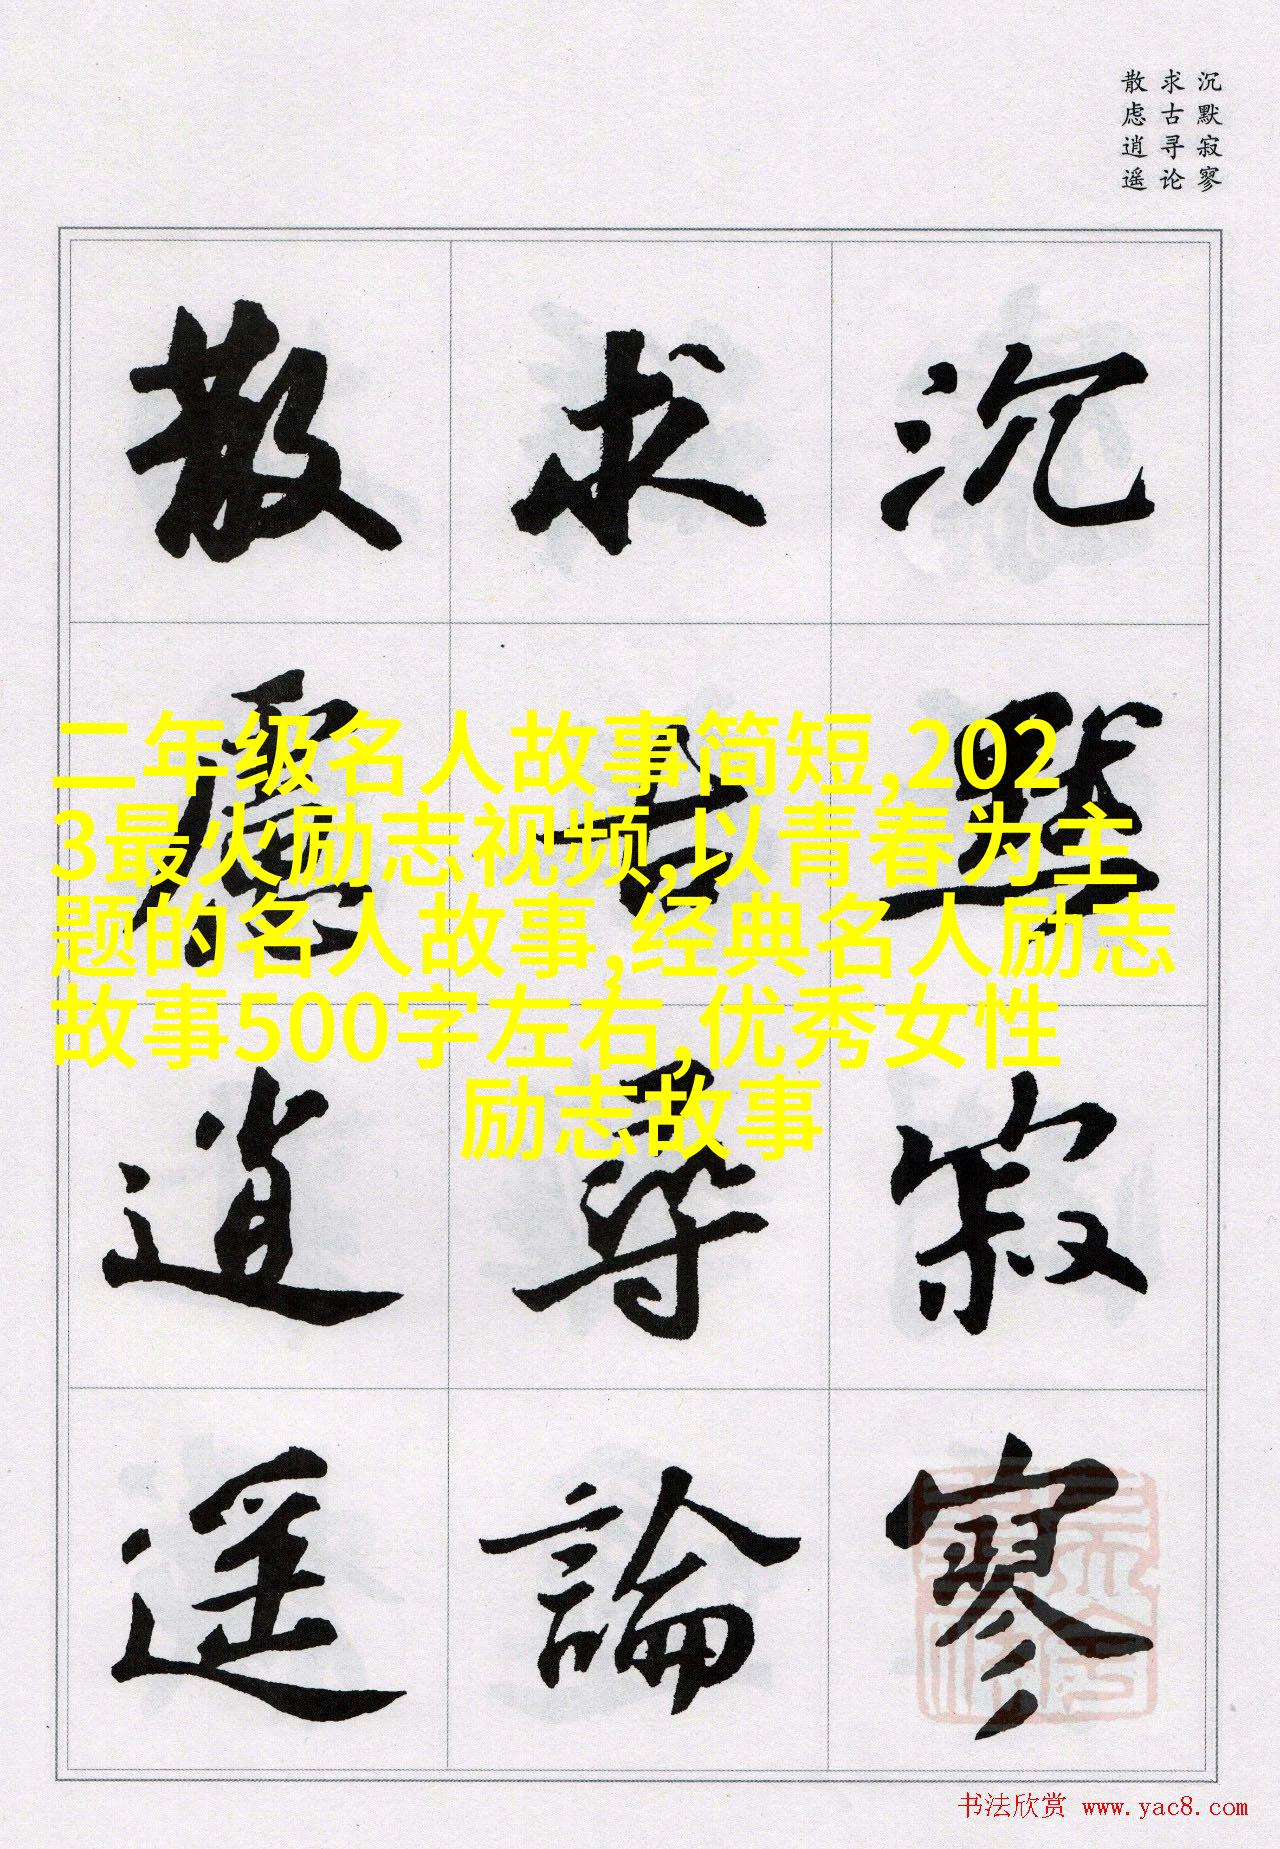 沉默寂寥
求古寻论
散虑逍遥
沉默寂寥
求古尋論
散慮逍遥
二年级名人故事简短,202
3最火励志视频,以青春为主
题的名人故事,经典名人励志
故事500字左右,优秀女性
励志故事
书法欣赏 www.yac8.com